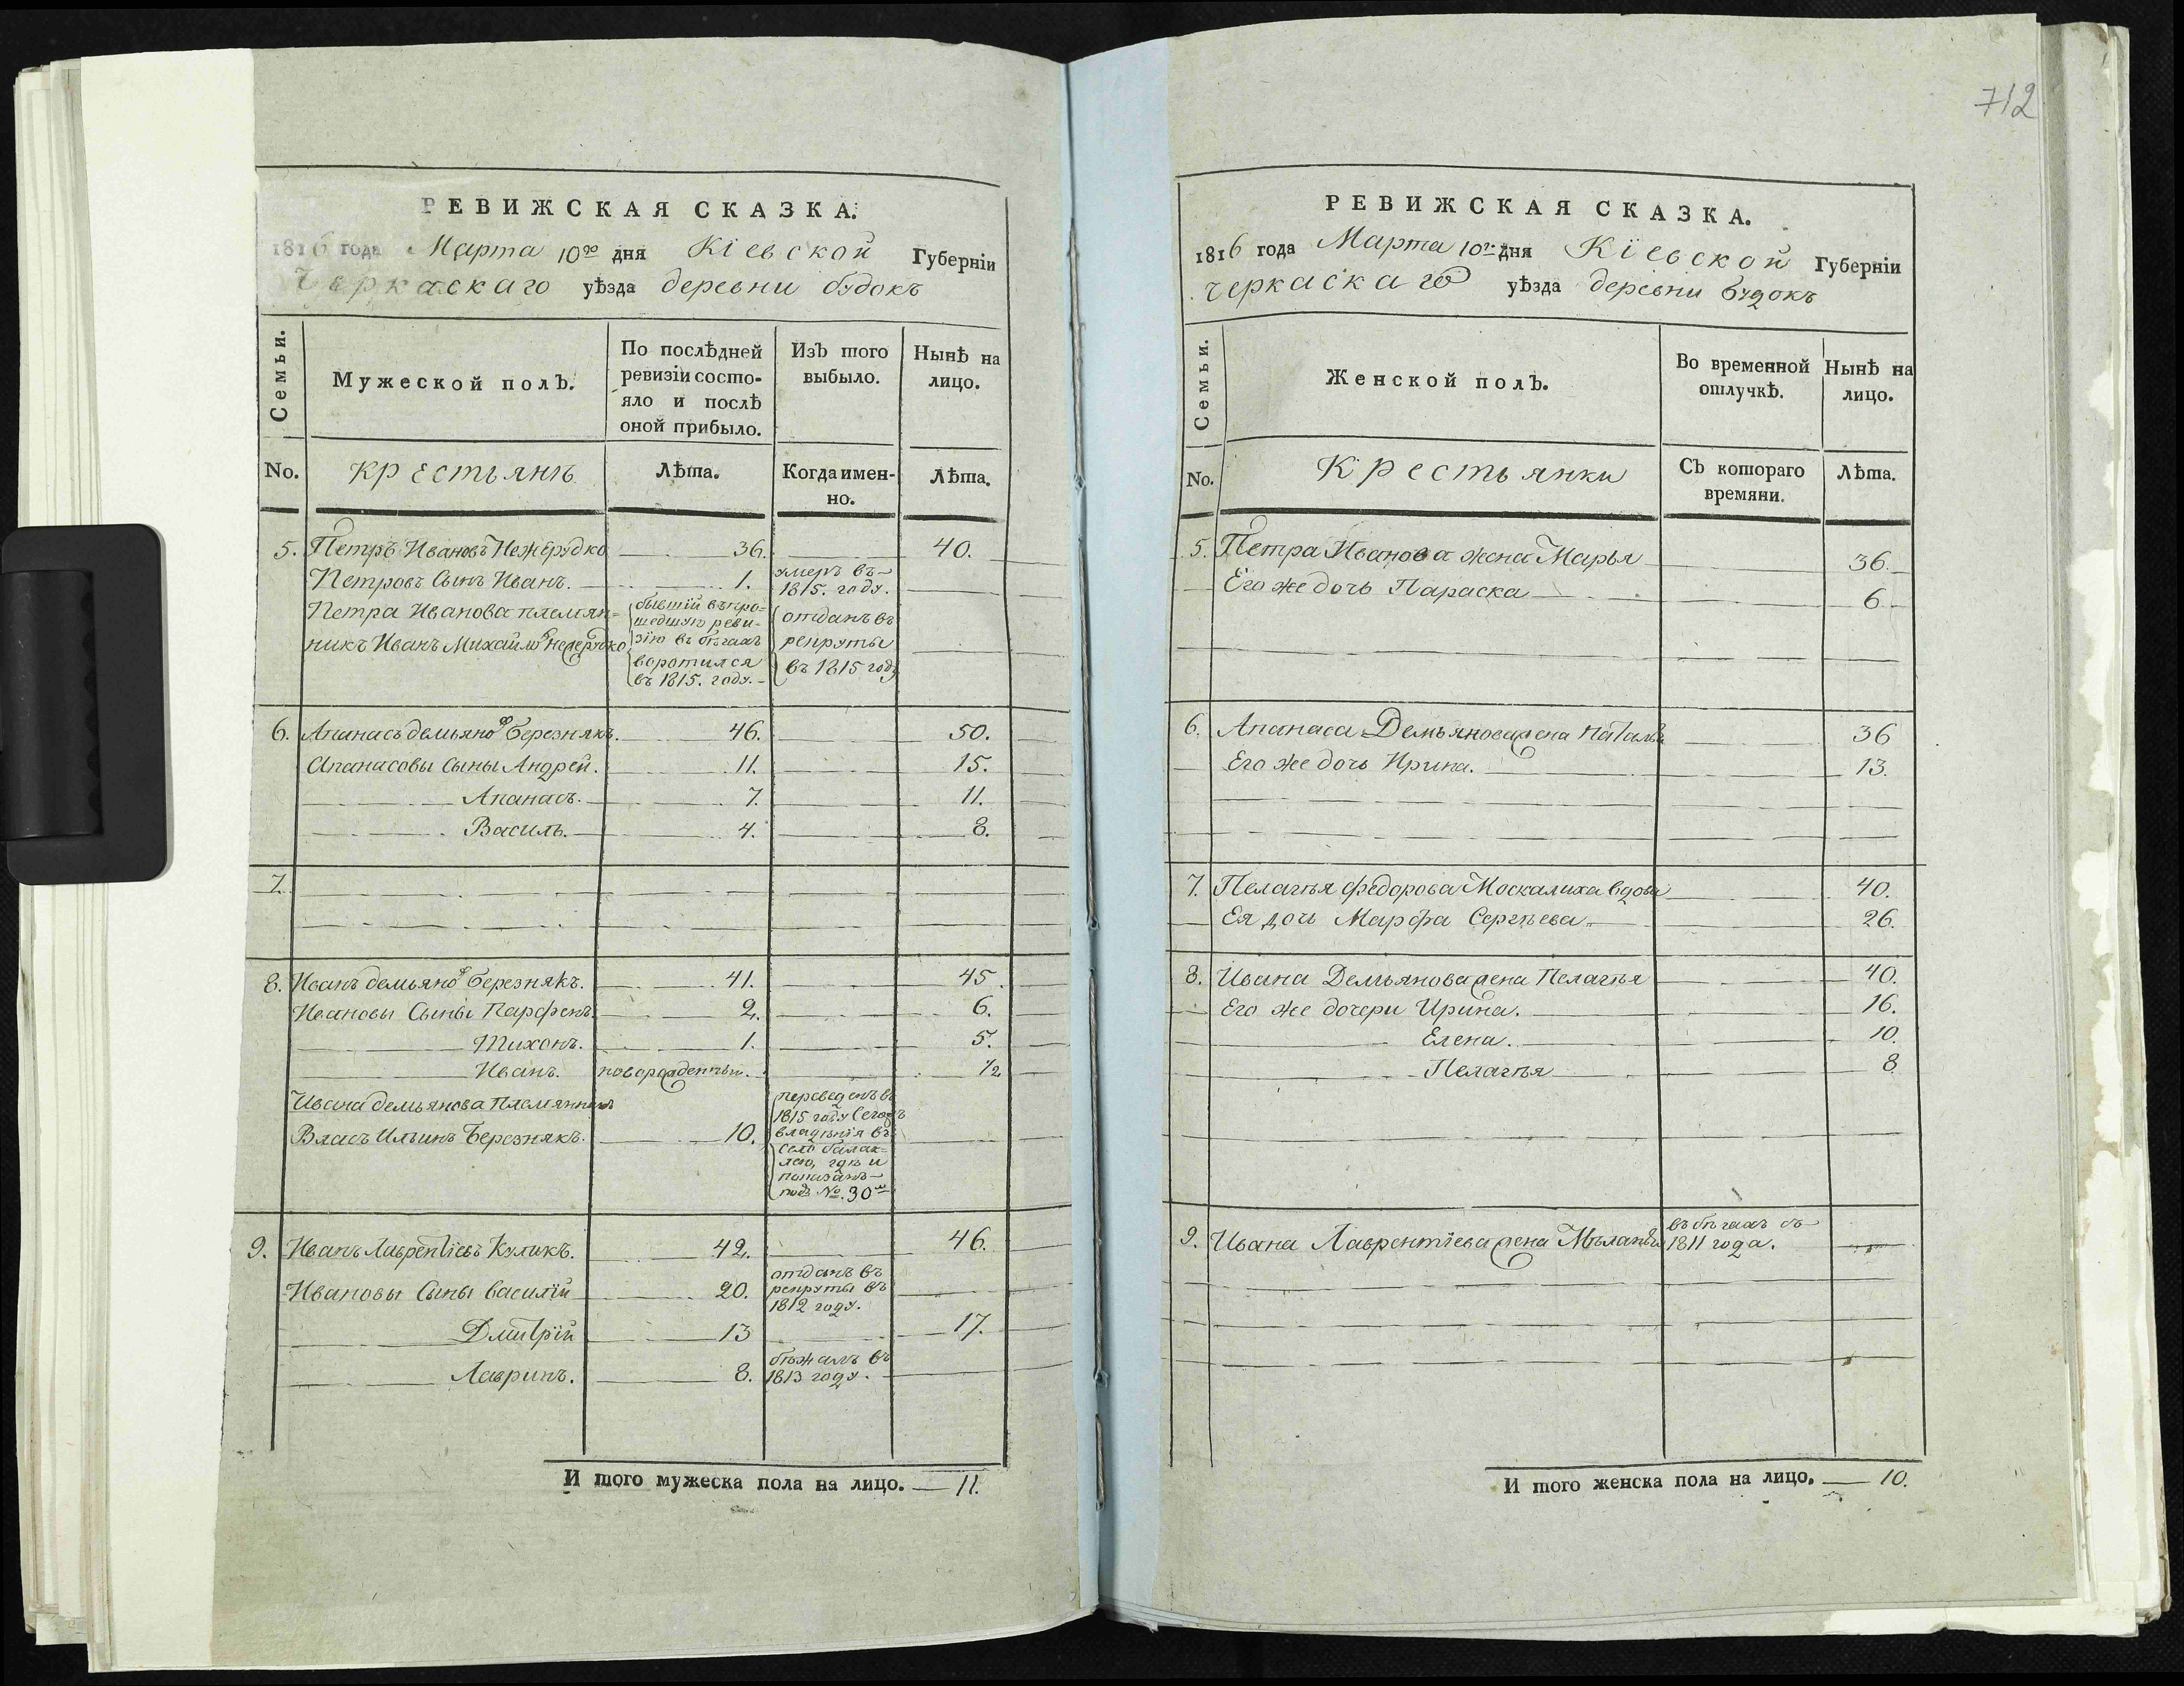 712
РЕВИЖСКАЯ СКАЗКА.
1816 года Марта 10го дня Кіевской Губерніи
Черкаскаго уѣзда деревни будокъ
Семьи.
Мужеской полъ.
По послѣдней ревизіи состо-
яло и послѣ
оной прибыло.
Изъ того выбыло.
Нынѣ на лицо.
No. Крестьянѣ Лѣта. Когда имен-
но. Лѣта.
5. Петръ Ивановъ Нежерудко 36. 40.
Петровъ Сынъ Иванъ. 1. умеръ въ
1815. году.
Петра Иванова племян=
никъ Иванъ Михайлов
бывшій въ про=
шедшую реви-
зію въ бѣгахъ
воротился
въ 1815. году.
отданъ въ
рекруты
въ 1815 году
6. Апанасъ демьянов березнякъ. 46. 50.
Апанасовы Сыны Андрей. 11. 15.
Апанасъ. 7. 11.
Василь. 4. 8.
7.
8. Иванъ демьянов березнякъ. 41. 45.
Ивановы Сыны Парфенъ. 2. 6.
Тихонъ. 1. 5.
Иванъ. новорожденный. 1/2
Ивана демьянова племянникъ
Власъ Ильинъ Березнякъ. 10.
переведенъ въ
1815 году сего
владѣнія въ
село балак=
лею, гдѣ и
показанъ
подъ №. 30м
9. Иванъ Лаврентіевъ Куликъ. 42. 46.
Ивановы Сыны Василій 20. отданъ въ
рекруты въ
1812 году.
Дмитрій 13 17.
Лавринъ. 8. бѣжалъ въ
1813 году.
И того мужеска пола на лицо. 11.
РЕВИЖСКАЯ СКАЗКА.
1816 года Марта 10го дня Кіевской Губерніи
черкаскаго уѣзда деревни будокъ
Семьи.
Женской полъ.
Во временной отлучкѣ.
Нынѣ на лицо.
No. Крестьянки Съ котораго
времяни. Лѣта.
5. Петра Иванова жена Марья 36.
Его же дочь Параска 6.
6. Апанаса Демьянова жена Наталья 36
Его же дочь Ирина. 13.
7. Пелагѣя федорова Москалиха вдова 40.
Ея дочь Марфа Сергѣева. 26.
8. Ивана Демьянова жена Пелагѣя 40.
Его же дочери Ирина. 16.
Елена. 10.
Пелагѣя 8.
9. Ивана Лаврентіева жена Мѣланья въ бѣгахъ съ
1811 года.
И того женска пола на лицо. 10.